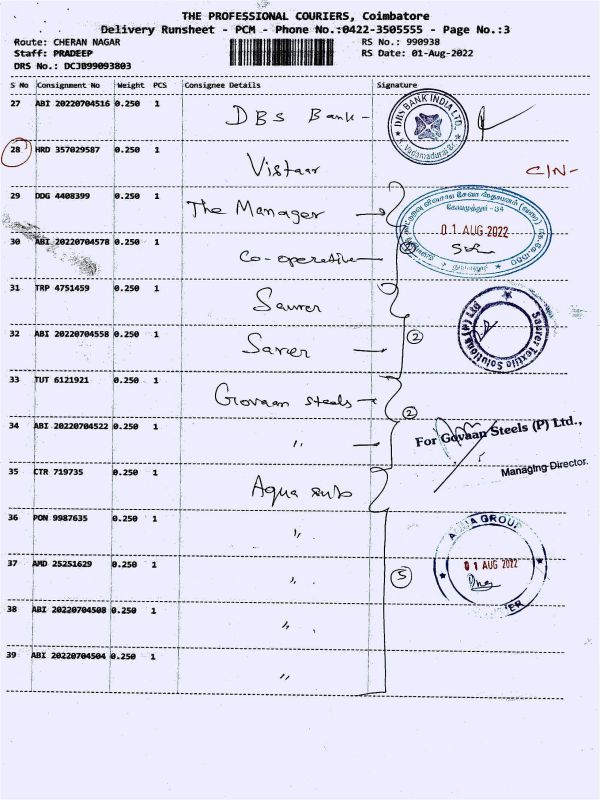 THE PROFESSIONAL COURIERS, Coimbatore
Delivery Runsheet - PCM - Phone No.:0422-3505555 - Page No.:3
Route: CHERAN NAGAR RS No.: 990938
Staff: PRADEEP RS Date: 01-Aug-2022
DRS No.: DCJB99093803
S No Consignment No Weight PCS Consignee Details Signature
27 ABI 20220704516 0.250 1 DBS Bank - DBS BANK INDIA LTD.
28 HRD 357029587 0.250 1 Vistaar C/N-
29 DDG 4408399 0.250 1 The Manager
01 AUG 2022
30 ABI 20220704578 0.250 1 co-operative
31 TRP 4751459 0.250 1 Saurer
32 ABI 20220704558 0.250 1 Saurer 2 Saurer Textile Solutions (P) Ltd
33 TUT 6121921 0.250 1 Govaan steels 2
34 ABI 20220704522 0.250 1 " For Govaan Steels (P) Ltd.,
Managing Director.
35 CTR 719735 0.250 1 Aqua sub
36 PON 9987635 0.250 1 " AQUA GROUP
37 AMD 25251629 0.250 1 " 5 01 AUG 2022
38 ABI 20220704508 0.250 1 "
39 ABI 20220704504 0.250 1 "